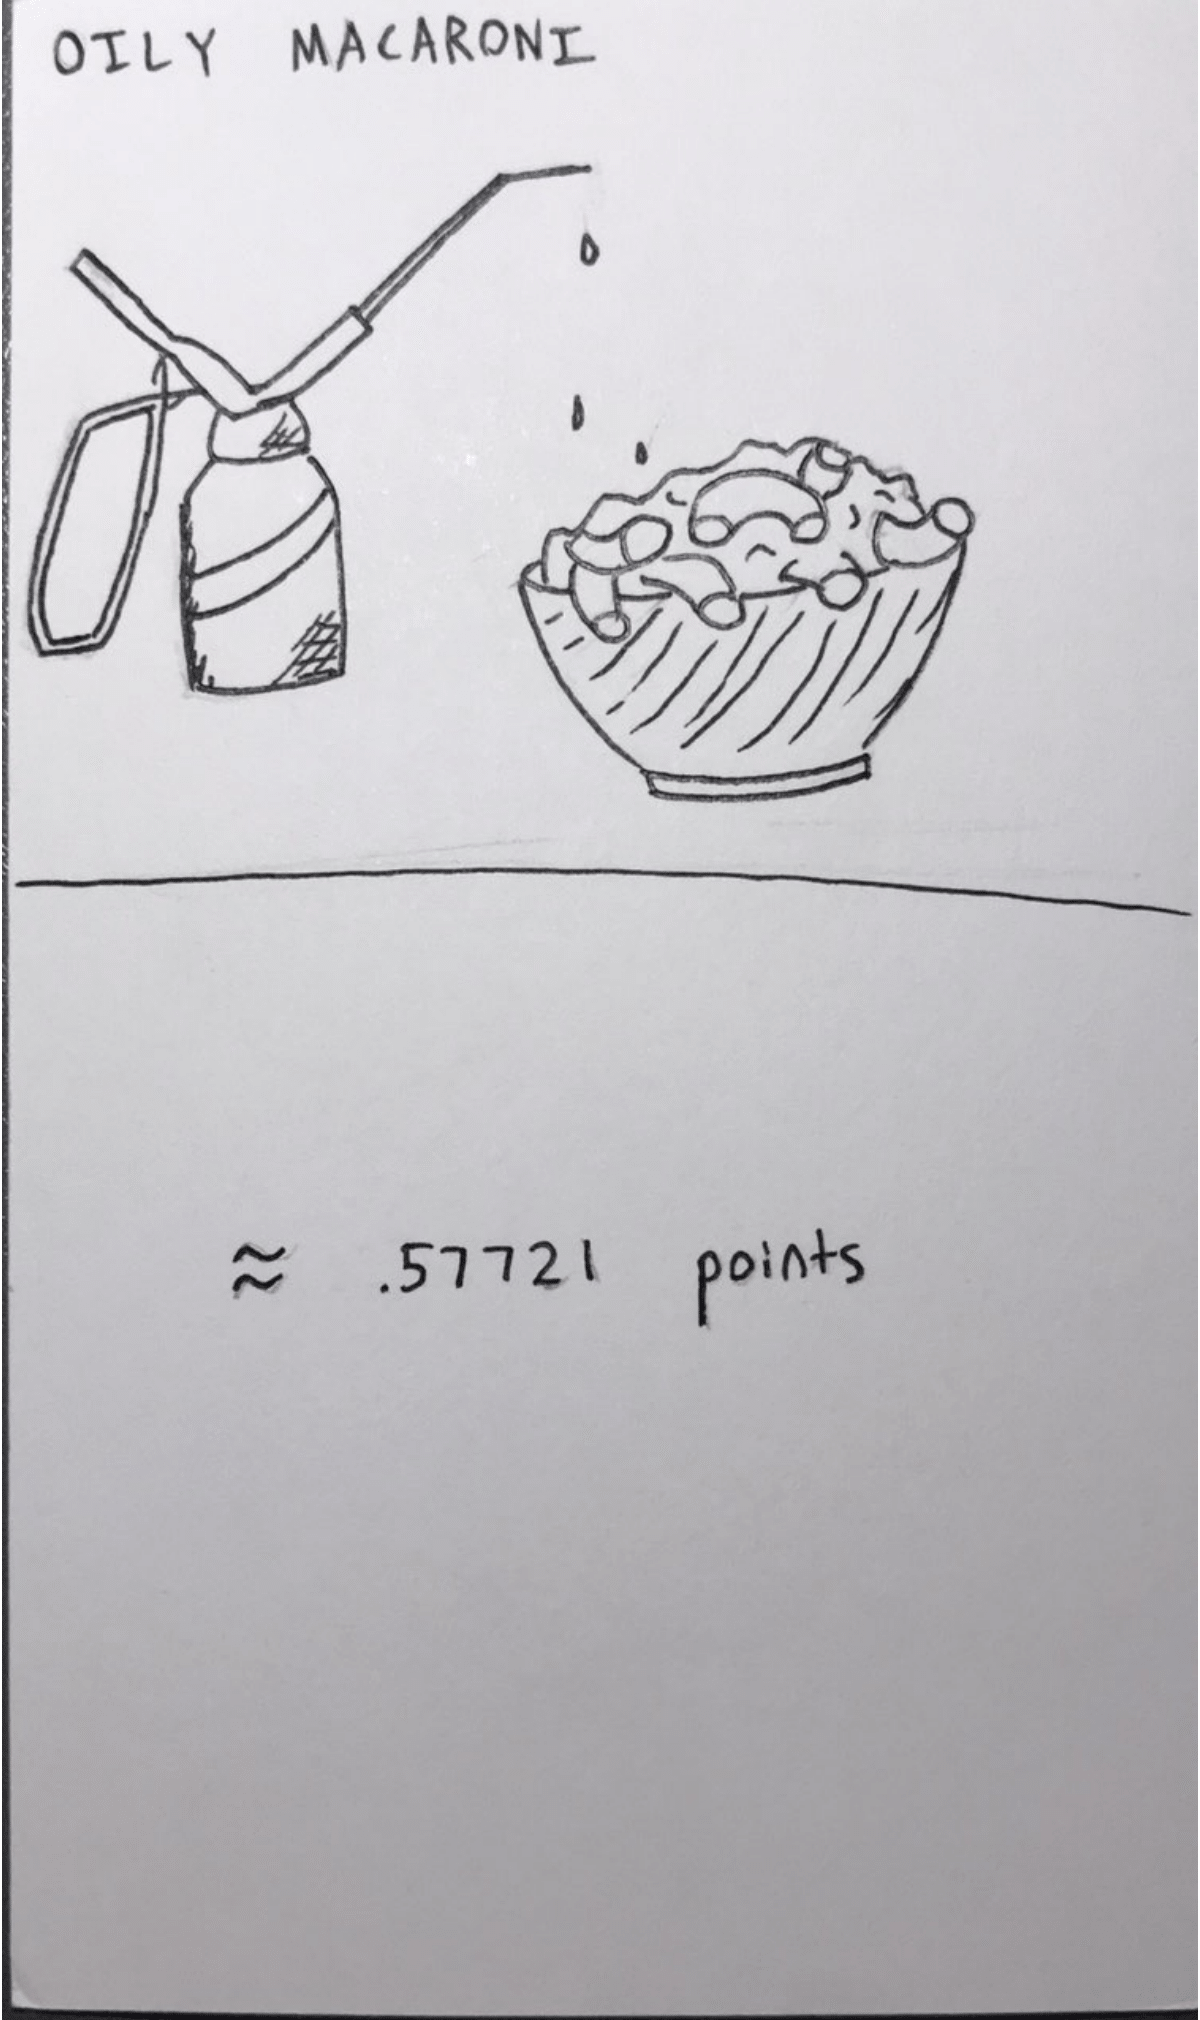 OILY MACARONI
≈ .57721 points